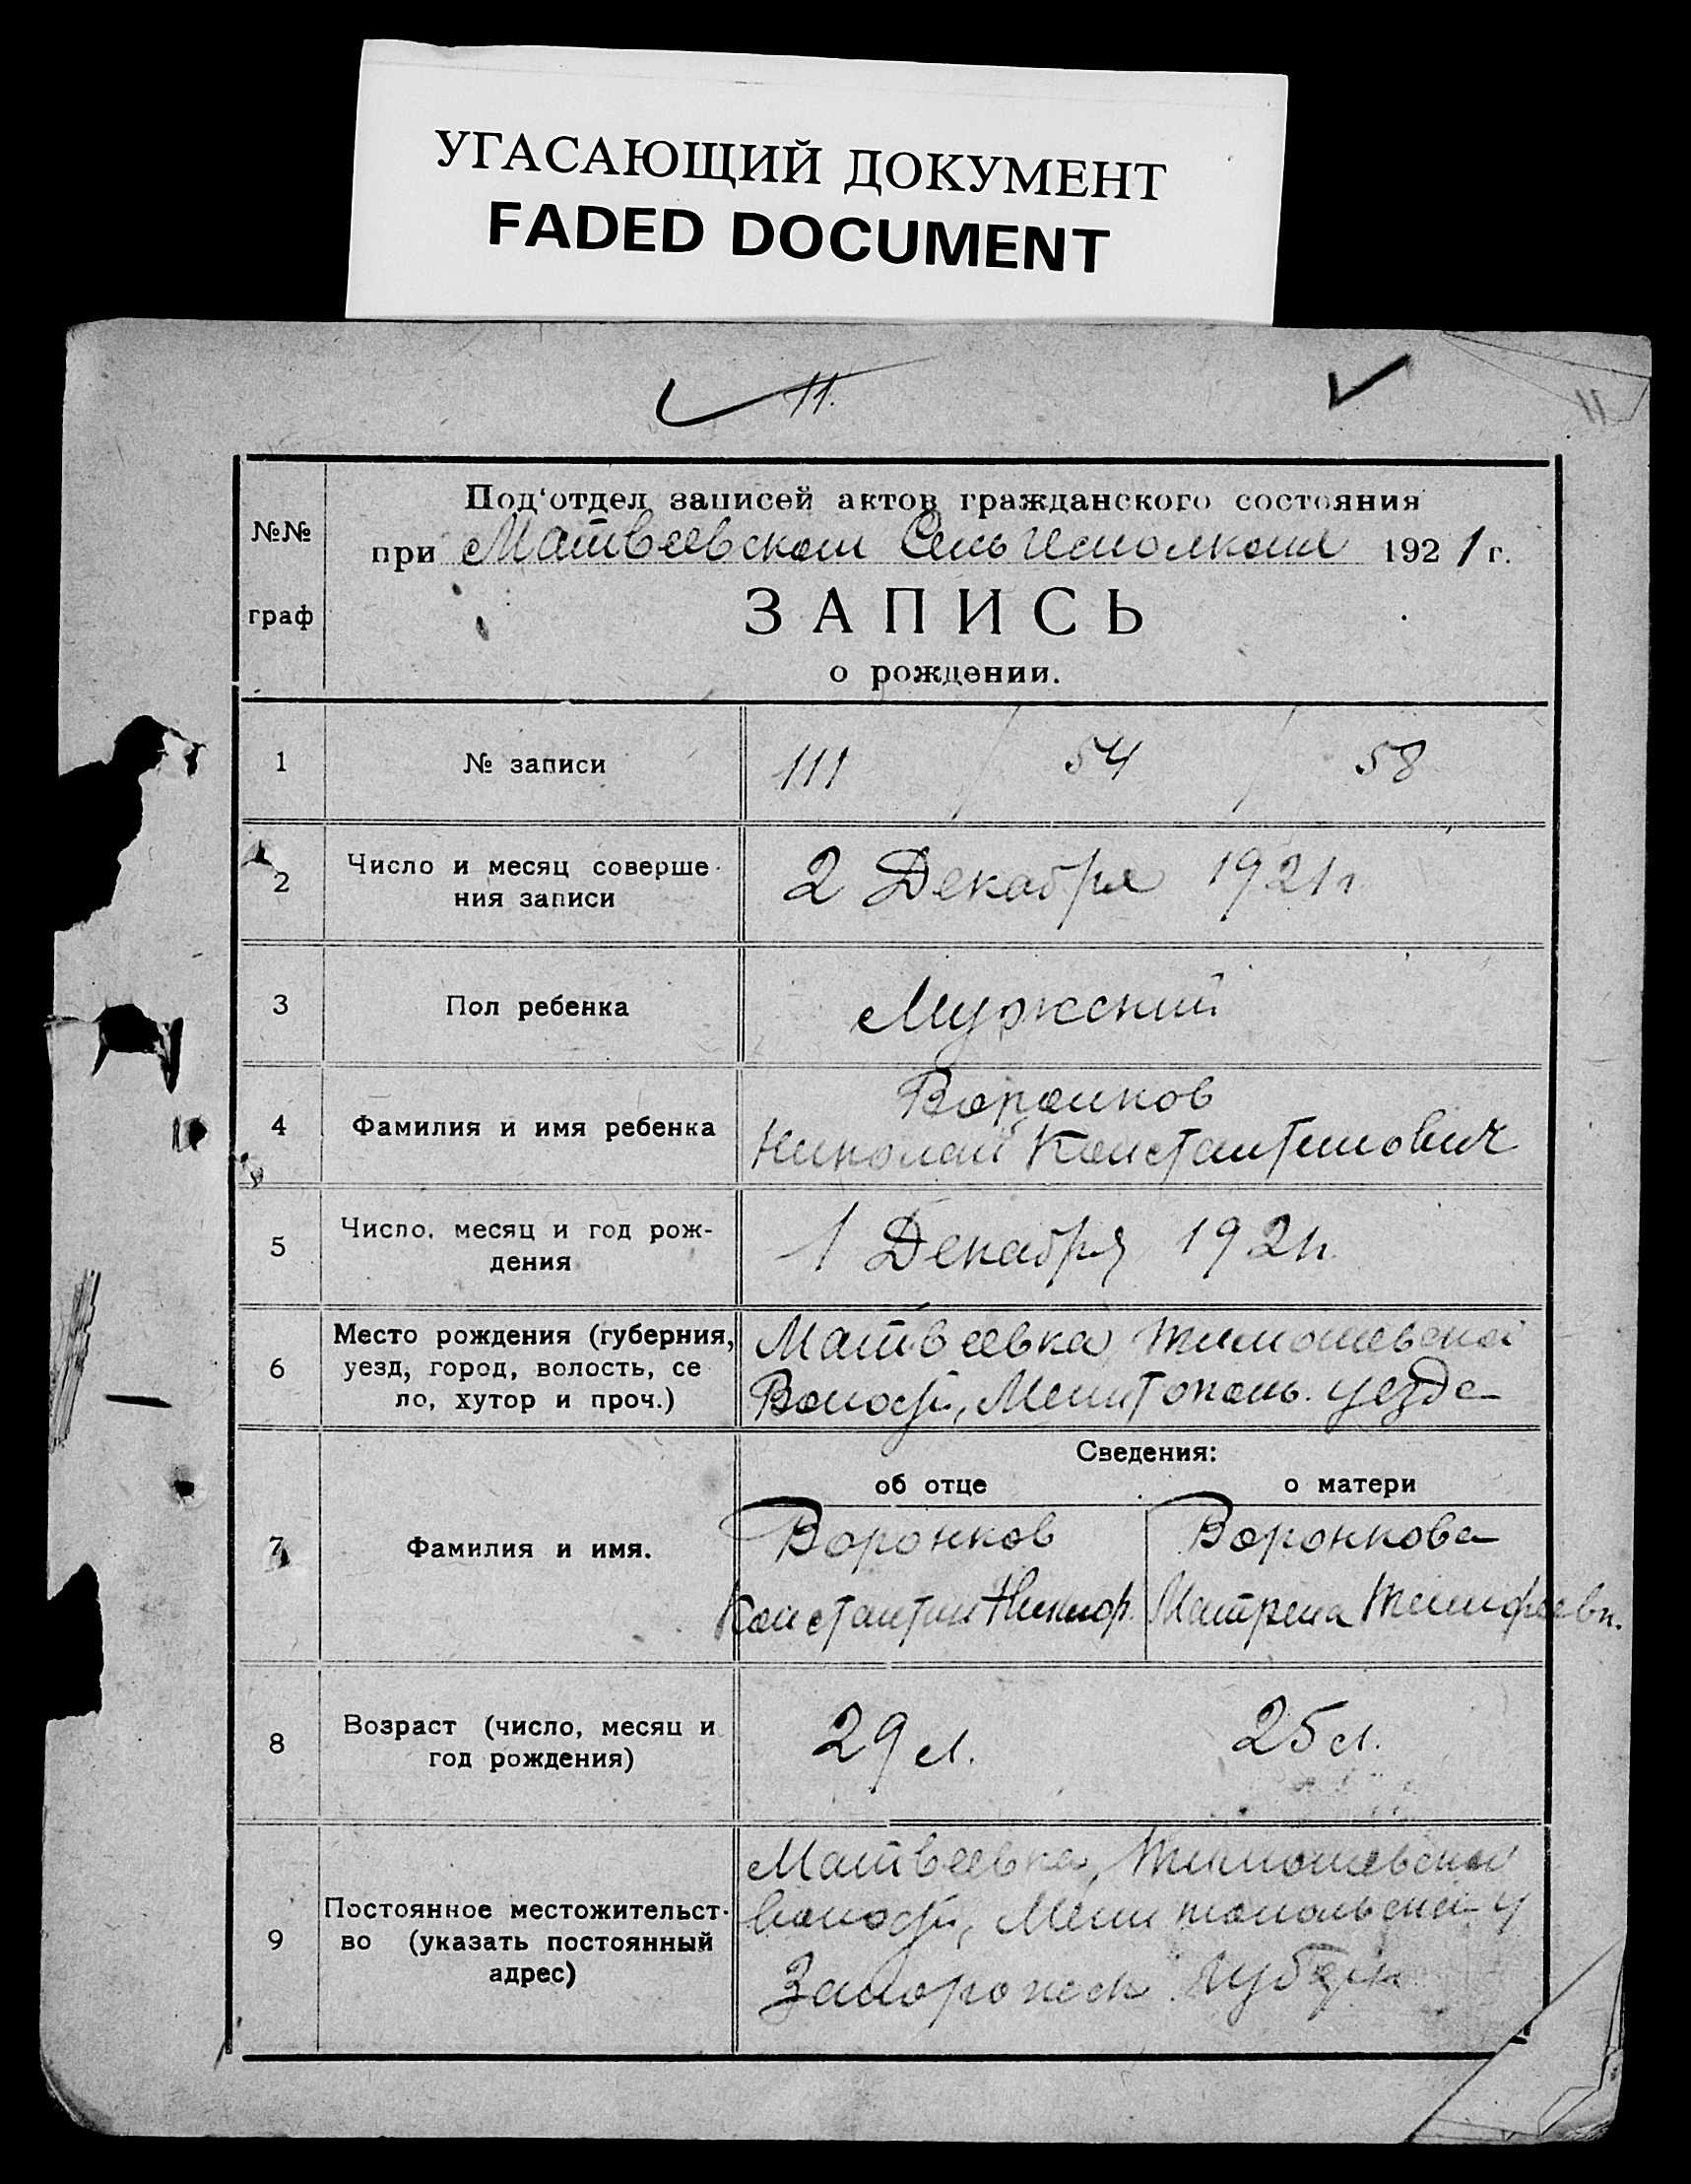 УГАСАЮЩИЙ ДОКУМЕНТ
FADED DOCUMENT
11.
11
№№
граф
Под'отдел записей актов гражданского состояния
при Матвеевском СельИсполкоме 1921 г.
ЗАПИСЬ
о рождении.
1
№ записи
111 / 54 / 58
2
Число и месяц соверше
ния записи
2 Декабря 1921 г
3
Пол ребенка
Мужский
4
Фамилия и имя ребенка
Воронков
Николай Константинович
5
Число, месяц и год рож-
дения
1 Декабря 1921 г.
6
Место рождения (губерния,
уезд, город, волость, се
ло, хутор и проч.)
Матвеевка, Тимошевской
Волости, Мелитополь. уезда
Сведения:
об отце
о матери
7
Фамилия и имя.
Воронков
Константин Никифор.
Воронкова
Матрена Тимофеевн.
8
Возраст (число, месяц и
год рождения)
29 л.
25 л.
9
Постоянное местожительст-
во (указать постоянный
адрес)
Матвеевка, Тимошевской
волости, Мелитопольской у
Запорожск. Губерн